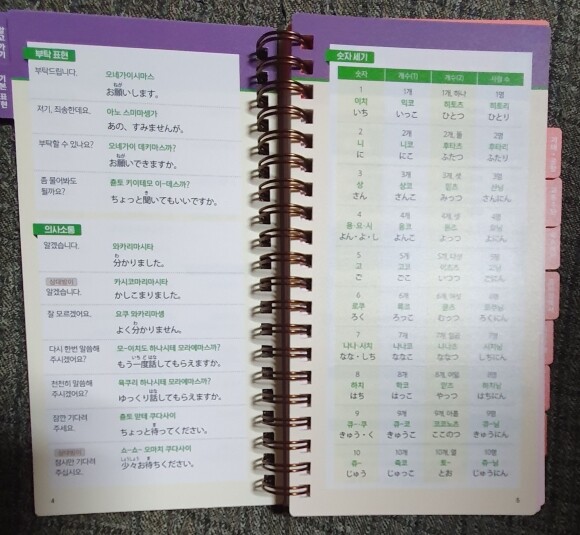 알고가기
기본 표현
부탁 표현
부탁드립니다.
오네가이시마스
ねが
お願いします。
저기, 죄송한데요.
아노 스미마셍가
あの、すみませんが。
부탁할 수 있나요?
오네가이 데키마스까?
ねが
お願いできますか。
좀 물어봐도
될까요?
춋토 키이테모 이-데스까?
き
ちょっと聞いてもいいですか。
의사소통
알겠습니다.
와카리마시타
わ
分かりました。
알겠습니다.
카시코마리마시타
かしこまりました。
잘 모르겠어요.
요쿠 와카리마셍
わ
よく分かりません。
다시 한번 말씀해
주시겠어요?
모-이치도 하나시테 모라에마스까?
いちど はな
もう一度話してもらえますか。
천천히 말씀해
주시겠어요?
육쿠리 하나시테 모라에마스까?
はな
ゆっくり話してもらえますか。
잠깐 기다려
주세요.
춋토 맏테 쿠다사이
ま
ちょっと待ってください。
잠시만 기다려
주십시오.
쇼-쇼- 오마치 쿠다사이
しょうしょう ま
少々お待ちください。
4
숫자 세기
숫자 개수(1) 개수(2) 사람 수
1 1개 1개, 하나 1명
이치 익코 히토츠 히토리
いち いっこ ひとつ ひとり
2 2개 2개, 둘 2명
니 니코 후타츠 후타리
に にこ ふたつ ふたり
3 3개 3개, 셋 3명
상 상코 산닝
さん さんこ みっつ さんにん
4 4개 4개, 넷 4명
용·요·시 용코 요닝
よん・よ・し よんこ よっつ よにん
5 5개 5명
고 고코 고닝
ご ごこ いつつ ごにん
6 6개 6명
로쿠 록코 로쿠닝
ろく ろっこ むっつ ろくにん
7 7개 7명
나나·시치 나나코 나나츠 시치닝
なな・しち ななこ ななつ しちにん
8 8개 8개, 여덟 8명
하치 학코 하치닝
はち はっこ やっつ はちにん
9 9개 9개, 아홉 9명
큐-·쿠 큐-코 코코노츠 큐-닝
きゅう・く きゅうこ ここのつ きゅうにん
10 10개 10개, 열 10명
쥬- 쥭코 토- 쥬-닝
じゅう じゅっこ とお じゅうにん
5